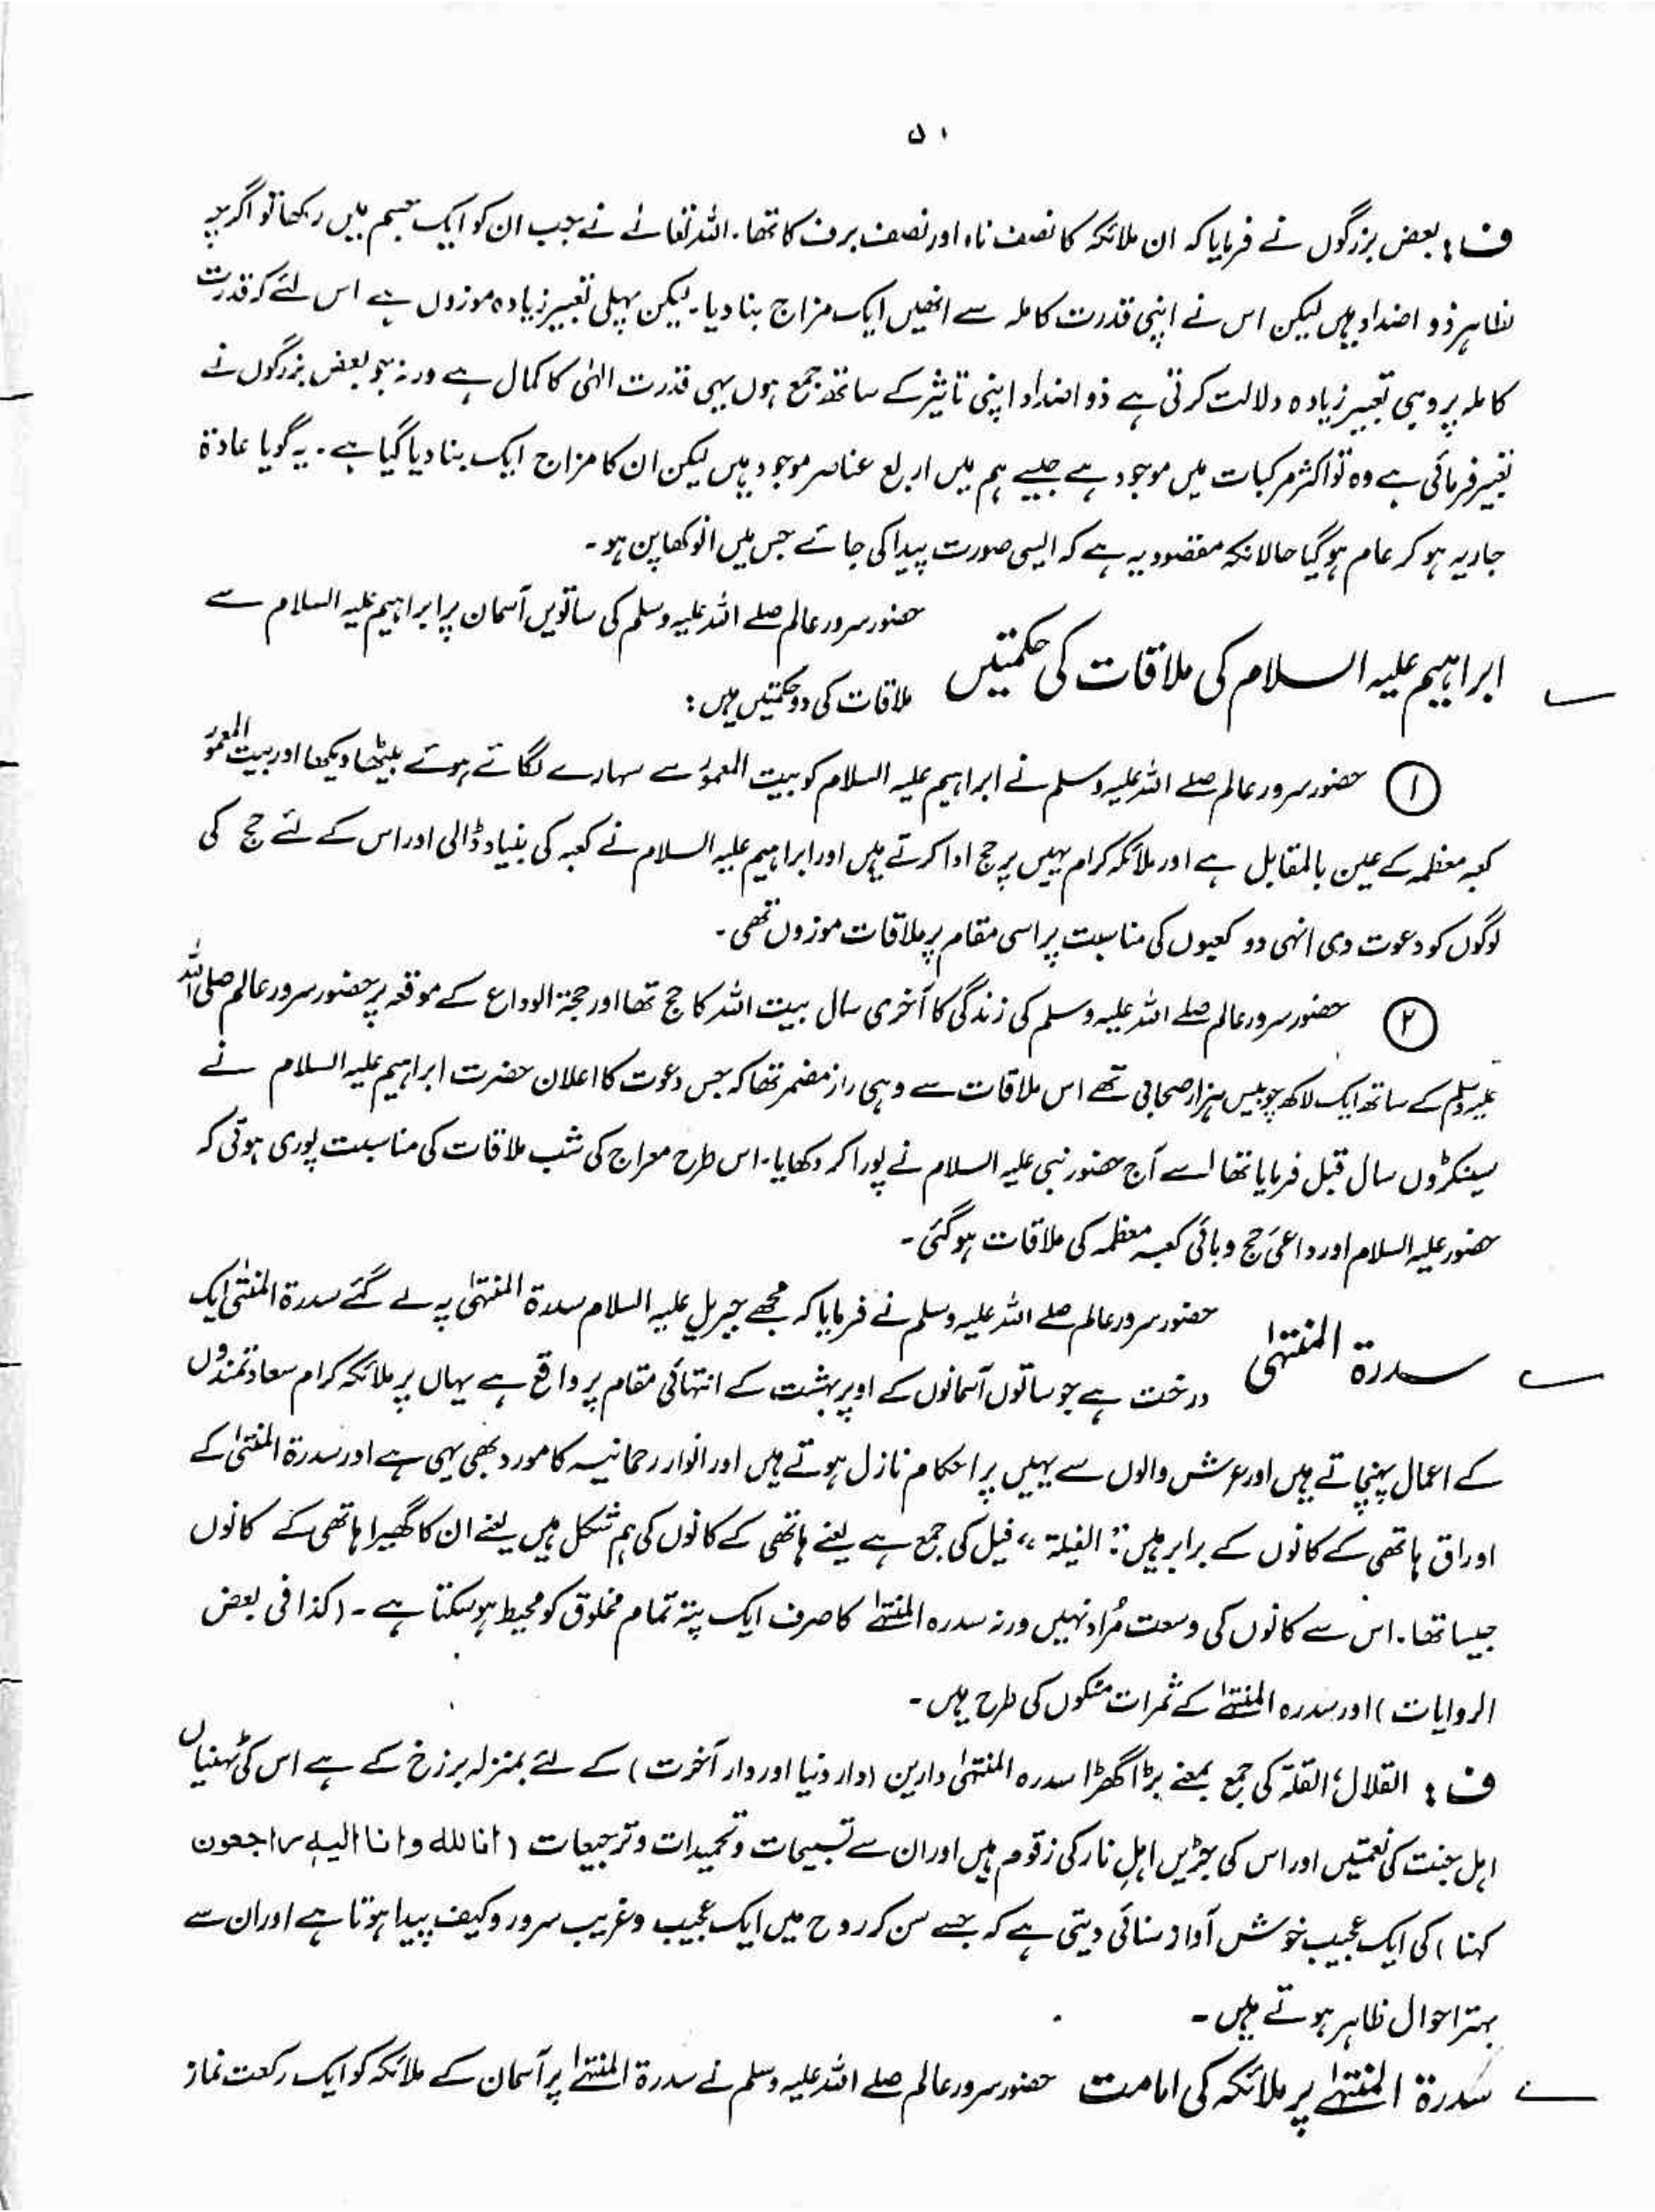 ۵۱
ف: بعض بزرگوں نے فرمایا کہ ان ملائکہ کا نصف نار اور نصف برف کا تھا۔ اللہ تعالےٰ نے جب ان کو ایک جسم میں رکھا تو اگرچہ
بظاہر ذو اضداد ہیں لیکن اس نے اپنی قدرت کاملہ سے انھیں ایک مزاج بنا دیا۔ لیکن پہلی تعبیر زیادہ موزوں ہے اس لئے کہ قدرت
کاملہ پر وہی تعبیر زیادہ دلالت کرتی ہے ذو اضداد اپنی تاثیر کے ساتھ جمع ہوں یہی قدرت الٰہی کا کمال ہے ورنہ جو بعض بزرگوں نے
تعبیر فرمائی ہے وہ تو اکثر مرکبات میں موجود ہے جیسے ہم میں اربع عناصر موجود ہیں لیکن ان کا مزاج ایک بنا دیا گیا ہے۔ یہ گویا عادۃ
جاریہ ہو کر عام ہو گیا حالانکہ مقصود یہ ہے کہ ایسی صورت پیدا کی جائے جس میں انوکھا پن ہو۔
ابراہیم علیہ السلام کی ملاقات کی حکمتیں
حضور سرور عالم صلے اللہ علیہ وسلم کی ساتویں آسمان پر ابراہیم علیہ السلام سے
ملاقات کی دو حکمتیں ہیں:
① حضور سرور عالم صلے اللہ علیہ وسلم نے ابراہیم علیہ السلام کو بیت المعمور سے سہارے لگائے ہوئے بیٹھا دیکھا اور بیت المعمور
کعبہ معظمہ کے عین بالمقابل ہے اور ملائکہ کرام یہیں پر حج ادا کرتے ہیں اور ابراہیم علیہ السلام نے کعبہ کی بنیاد ڈالی اور اس کے لئے حج کی
لوگوں کو دعوت دی انہی دو کعبوں کی مناسبت پر اسی مقام پر ملاقات موزوں تھی۔
② حضور سرور عالم صلے اللہ علیہ وسلم کی زندگی کا آخری سال بیت اللہ کا حج تھا اور حجۃ الوداع کے موقعہ پر حضور سرور عالم صلی اللہ
علیہ وسلم کے ساتھ ایک لاکھ چوبیس ہزار صحابی تھے اس ملاقات سے وہی راز مضمر تھا کہ جس دعوت کا اعلان حضرت ابراہیم علیہ السلام نے
سینکڑوں سال قبل فرمایا تھا اسے آج حضور نبی علیہ السلام نے پورا کر دکھایا۔ اس طرح معراج کی شب ملاقات کی مناسبت پوری ہوتی کہ
حضور علیہ السلام اور داعئ حج و بانی کعبہ معظمہ کی ملاقات ہو گئی۔
سدرۃ المنتہٰی
حضور سرور عالم صلے اللہ علیہ وسلم نے فرمایا کہ مجھے جبریل علیہ السلام سدرۃ المنتہٰی پہ لے گئے سدرۃ المنتہٰی ایک
درخت ہے جو ساتوں آسمانوں کے اوپر بہشت کے انتہائی مقام پر واقع ہے یہاں پر ملائکہ کرام سعادتمندوں
کے اعمال پہنچاتے ہیں اور عرش والوں سے یہیں پر احکام نازل ہوتے ہیں اور انوار رحمانیہ کا مورد بھی یہی ہے اور سدرۃ المنتہٰی کے
اوراق ہاتھی کے کانوں کے برابر ہیں: "الفیلۃ" فیل کی جمع ہے یعنے ہاتھی کے کانوں کی ہم شکل ہیں یعنے ان کا گھیرا ہاتھی کے کانوں
جیسا تھا۔ اس سے کانوں کی وسعت مُراد نہیں ورنہ سدرہ المنتہٰے کا صرف ایک پتہ تمام مخلوق کو محیط ہو سکتا ہے۔ (کذا فی بعض
الروایات) اور سدرہ المنتہٰے کے ثمرات مٹکوں کی طرح ہیں۔
ف: القلال، القلۃ کی جمع بمعنے بڑا گھڑا سدرہ المنتہٰی دارین (دار دنیا اور دار آخرت) کے لئے بمنزلہ برزخ کے ہے اس کی ٹہنیاں
اہل جنت کی نعمتیں اور اس کی جڑیں اہلِ نار کی زقوم ہیں اور ان سے تسبیحات و تحمیدات و ترجیعات (انا للہ وانا الیہ راجعون
کہنا) کی ایک عجیب خوش آواز سنائی دیتی ہے کہ جسے سن کر روح میں ایک عجیب و غریب سرور و کیف پیدا ہوتا ہے اور ان سے
بہتر احوال ظاہر ہوتے ہیں۔
سدرۃ المنتہٰے پر ملائکہ کی امامت حضور سرور عالم صلے اللہ علیہ وسلم نے سدرۃ المنتہٰے پر آسمان کے ملائکہ کو ایک رکعت نماز